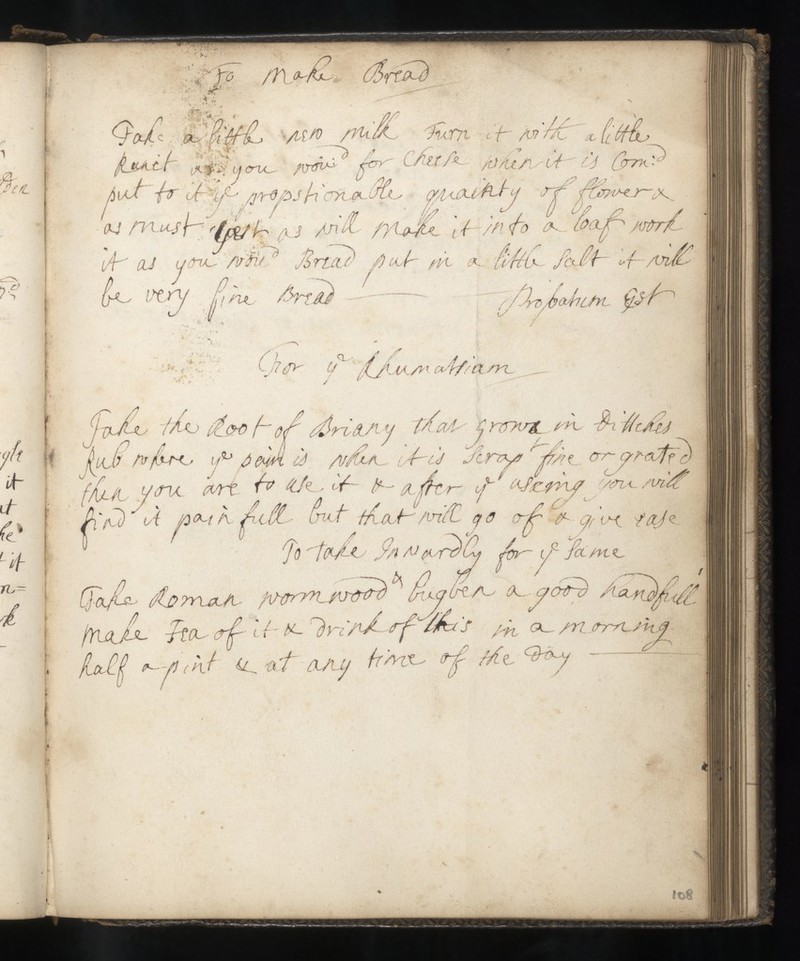 To make Bread
Take a little new milk Turn it with a little
Runit as you wou:d for Cheese when it is Com:d
put to it ye propstionable quaintty of flower &
as must yest as will make it into a loaf work
it as you wou:d Bread put in a little Salt it will
be very fine Bread — Probatum Est
For ye Rhumatisiam
Take the Root of Briany that grows in Ditches
Rub where ye pain is when it is Scrapt fine or grated
then you are to use it & after ye useing you will
find it pain full but that will go of & give ease
To take Inwardly for ye Same
Take Roman wormwood & bugben a good handfull
make Tea of it & drink of this in a morning
half a pint & at any time of the Day —
108
it
it